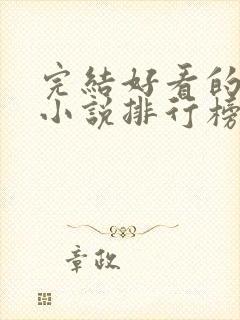 完結好看的
小說排行榜
章政